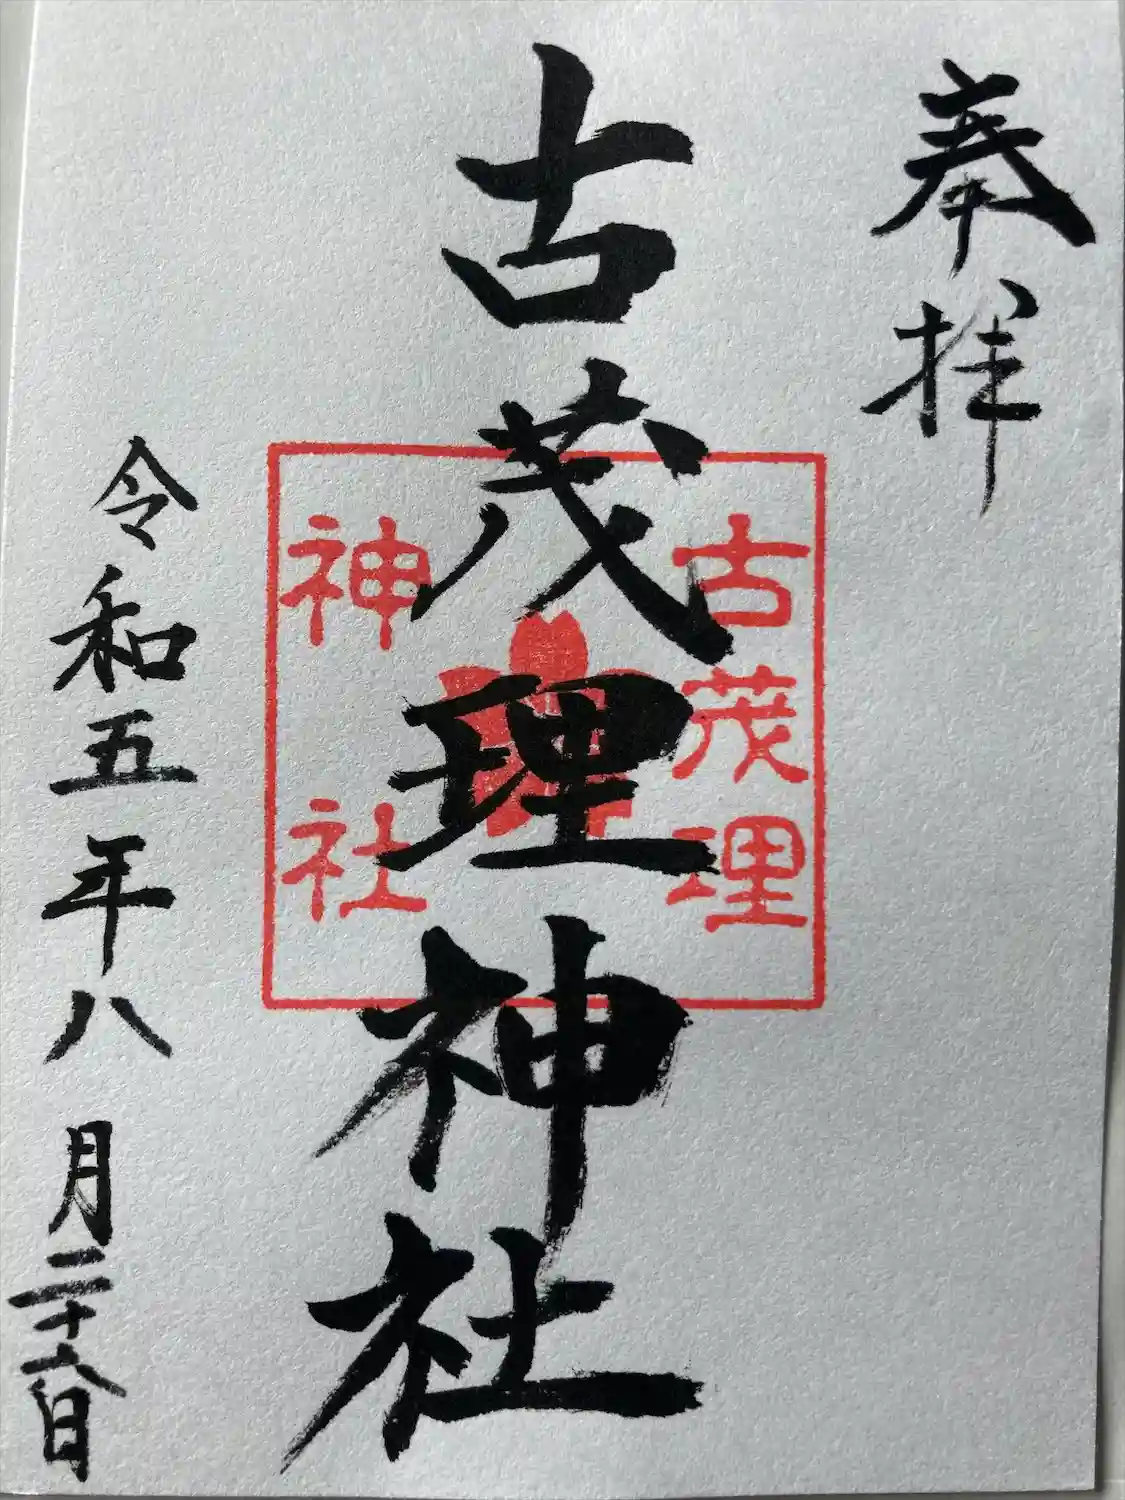 奉拝
古茂理神社
古茂理
神社
令和五年八月二十六日